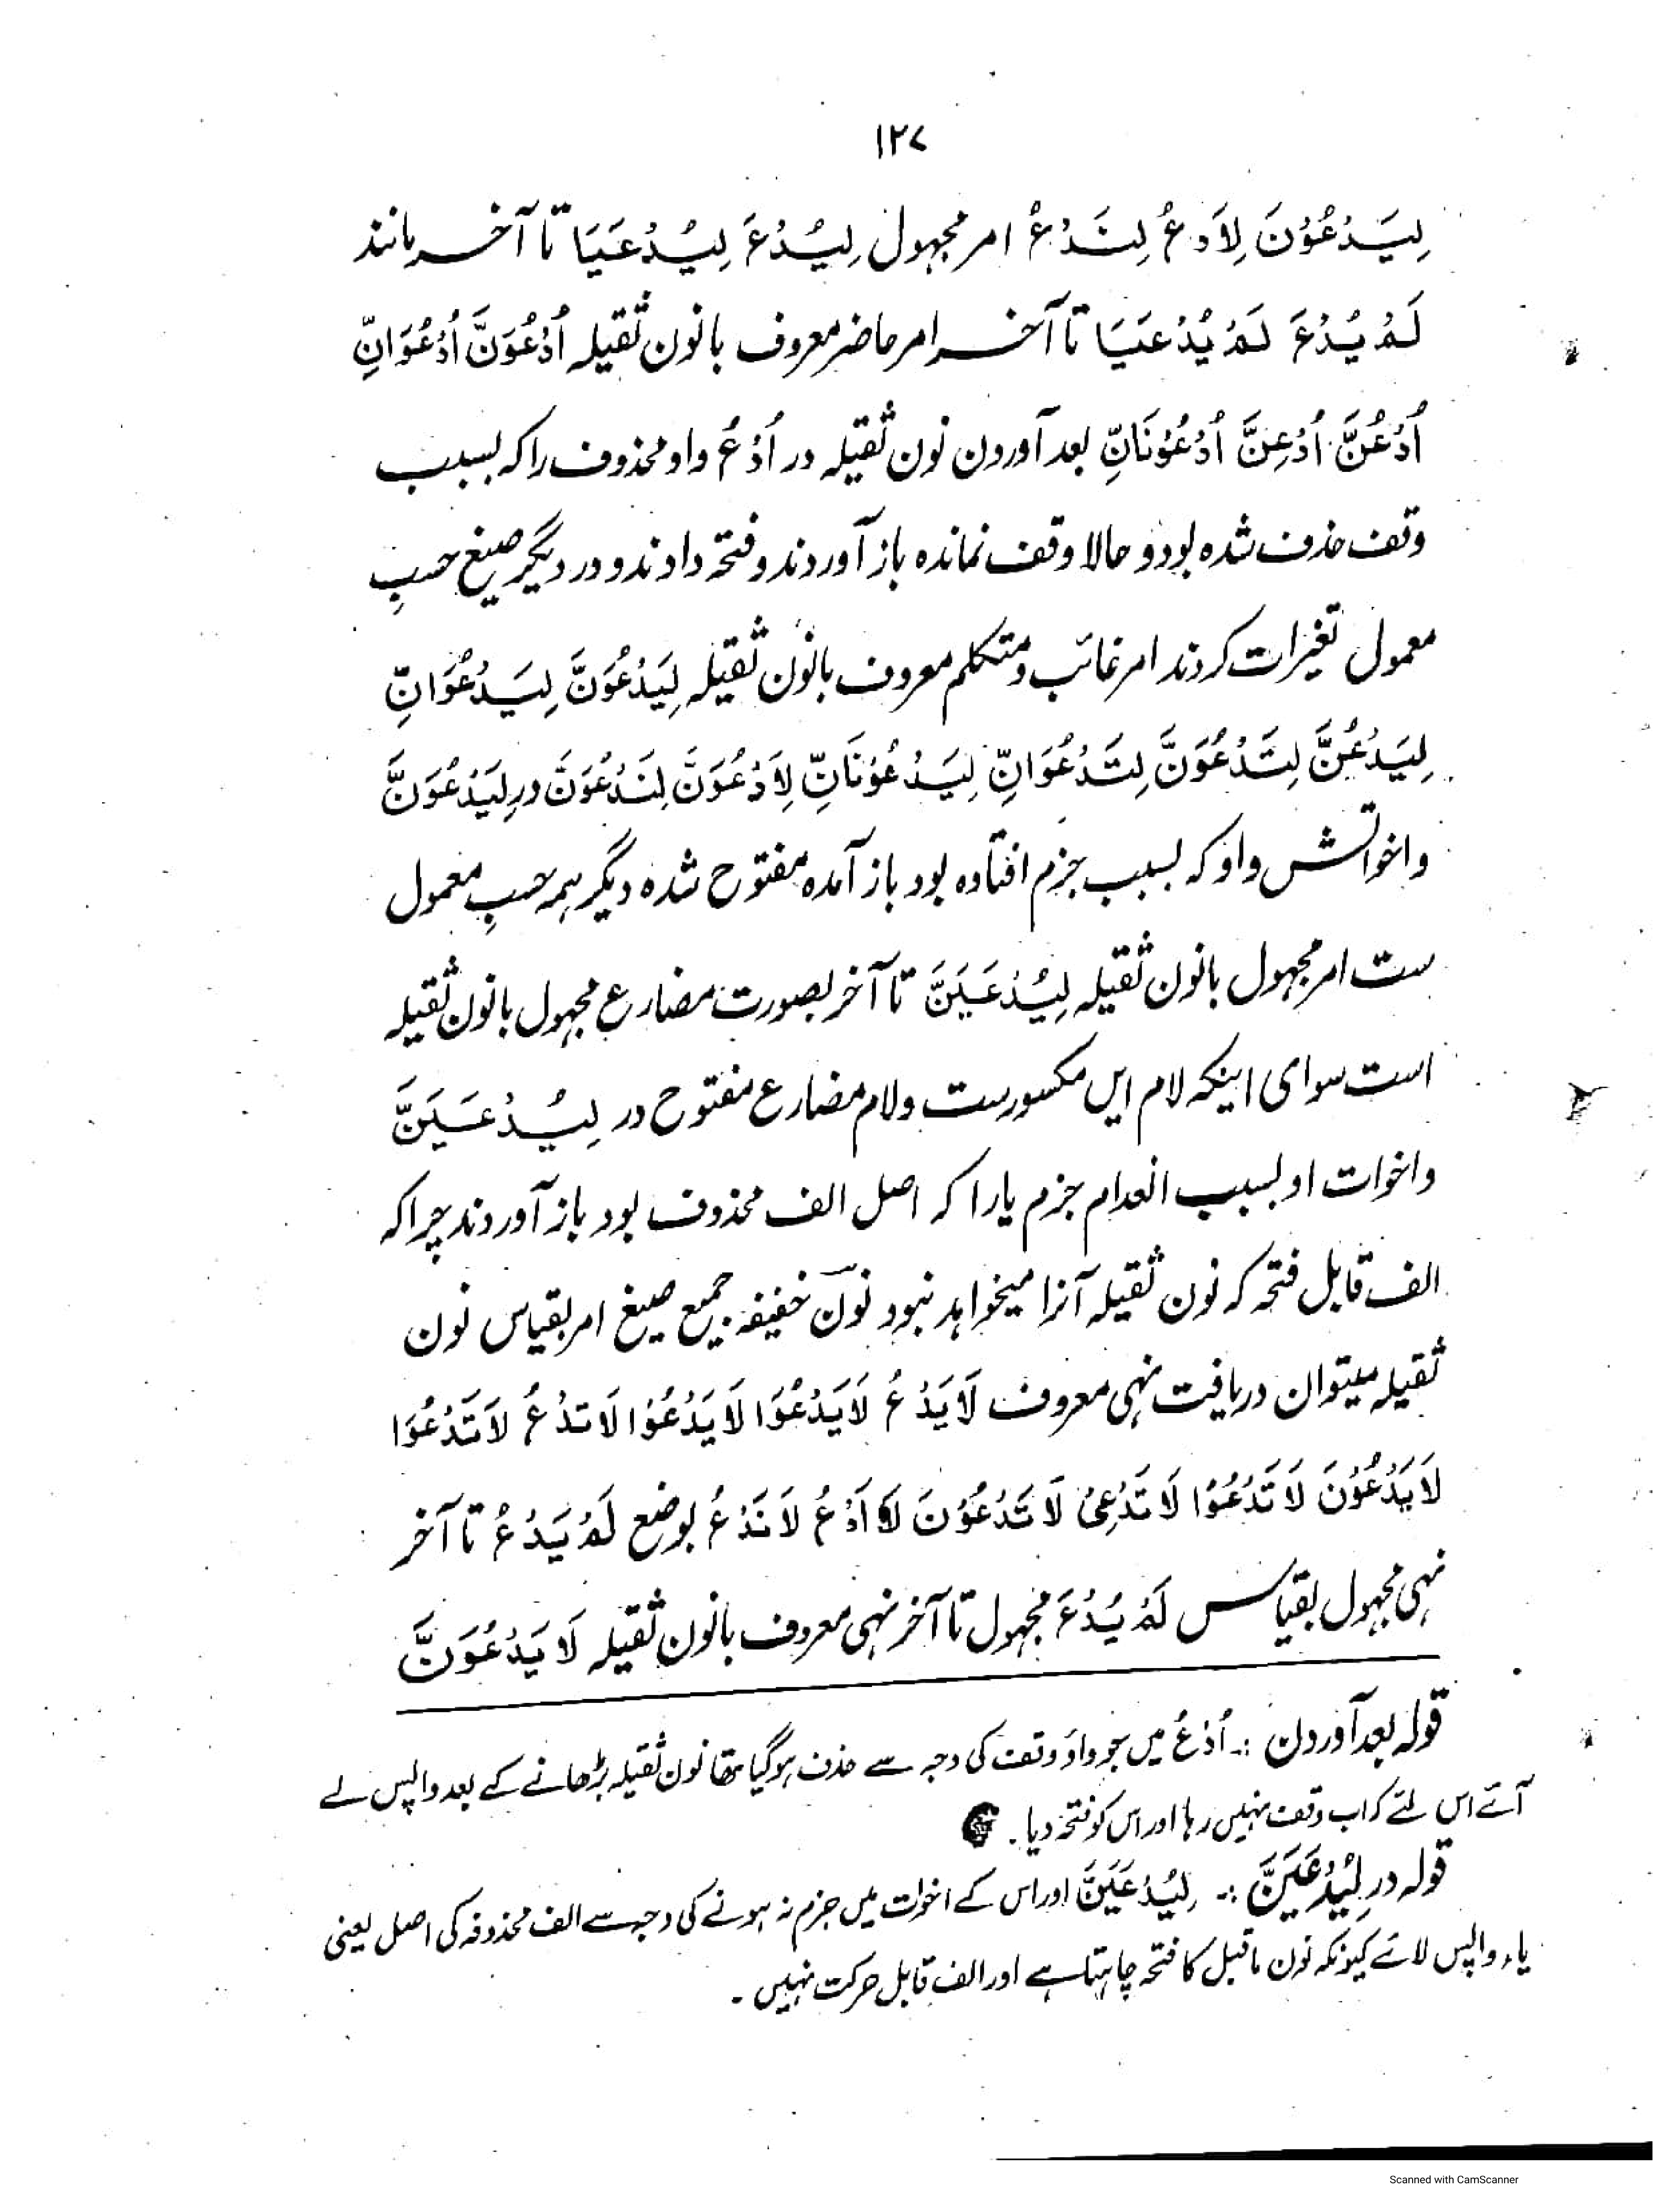 ۱۲۷
لِيَدْعُوْنَ لِاَدْعُ لِنَدْعُ امر مجہول لِيُدْعَ لِيُدْعَيَا تا آخر مانند
لَمْ يُدْعَ لَمْ يُدْعَيَا تا آخر امر حاضر معروف بانون ثقیلہ اُدْعُوَنَّ اُدْعُوَانِّ
اُدْعُنَّ اُدْعِنَّ اُدْعُوْنَانِّ بعد آوردن نون ثقیلہ در اُدْعُ واو محذوف را کہ بسبب
وقف حذف شدہ بود و حالا وقف نماندہ باز آوردند و فتحہ دادند و در دیگر صیغ حسبِ
معمول تغیرات کردند امر غائب و متکلم معروف بانون ثقیلہ لِيَدْعُوَنَّ لِيَدْعُوَانِّ
لِيَدْعُنَّ لِتَدْعُوَنَّ لِتَدْعُوَانِّ لِيَدْعُوْنَانِّ لِاَدْعُوَنَّ لِنَدْعُوَنَّ در لِيَدْعُوَنَّ
واخواتش واو کہ بسبب جزم افتادہ بود باز آمدہ مفتوح شدہ دیگر ہمہ حسبِ معمول
ست امر مجہول بانون ثقیلہ لِيُدْعَيَنَّ تا آخر بصورت مضارع مجہول بانون ثقیلہ
است سوای اینکہ لام این مکسورست و لام مضارع مفتوح در لِيُدْعَيَنَّ
واخوات او بسبب انعدام جزم یا را کہ اصل الف محذوف بود باز آوردند چرا کہ
الف قابل فتحہ کہ نون ثقیلہ آنرا میخواہد نبود نون خفیفہ جمیع صیغ امر بقیاس نون
ثقیلہ میتوان دریافت نہی معروف لَا يَدْعُ لَا يَدْعُوَا لَا يَدْعُوْا لَا تَدْعُ لَا تَدْعُوَا
لَا يَدْعُوْنَ لَا تَدْعُوْا لَا تَدْعِیْ لَا تَدْعُوْنَ لَا اَدْعُ لَا نَدْعُ بوضع لَمْ يَدْعُ تا آخر
نہی مجہول بقیاس لَمْ يُدْعَ مجہول تا آخر نہی معروف بانون ثقیلہ لَا يَدْعُوَنَّ
قولہ بعد آوردن :۔ اُدْعُ میں جو واؤ وقف کی وجہ سے حذف ہوگیا تھا نون ثقیلہ بڑھانے کے بعد واپس لے
آئے اس لئے کہ اب وقف نہیں رہا اور اس کو فتحہ دیا۔
قولہ در لِيُدْعَيَنَّ :۔ لِيُدْعَيَنَّ اور اس کے اخوات میں جزم نہ ہونے کی وجہ سے الف محذوفہ کی اصل یعنی
یاء واپس لائے کیونکہ نون ماقبل کا فتحہ چاہتا ہے اور الف قابل حرکت نہیں۔
Scanned with CamScanner